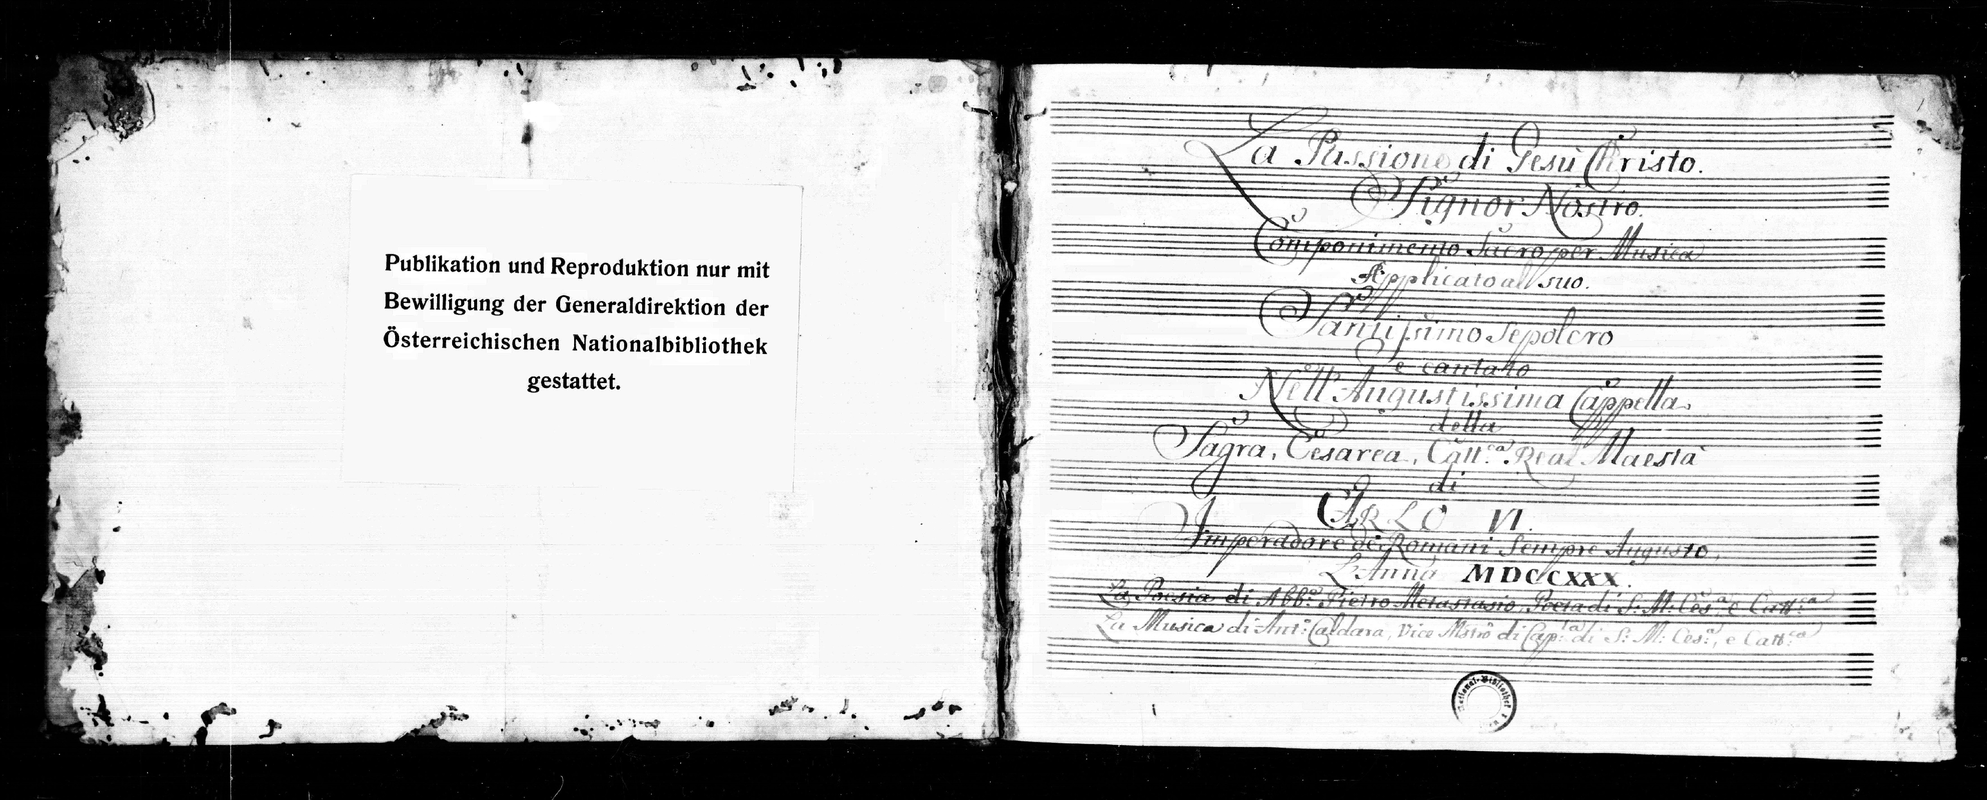 Publikation und Reproduktion nur mit
Bewilligung der Generaldirektion der
Österreichischen Nationalbibliothek
gestattet.
La Passione di Gesù Christo.
Signor Nostro.
Componimento Sacro per Musica
Applicato al suo.
Santissimo Sepolcro
e cantato
Nell' Augustissima Cappella
della
Sagra, Cesarea, Catt.ca Real Maestà
di
CARLO VI.
Imperadore de' Romani Sempre Augusto,
L'Anno MDCCXXX.
La Poesia di Abb.e Pietro Metastasio, Poeta di S: M: Ces.a e Catt.ca
La Musica di Ant.o Caldara, Vice Mstrô di Cap.la di S: M: Ces.a, e Catt.ca
National-Bibliothek